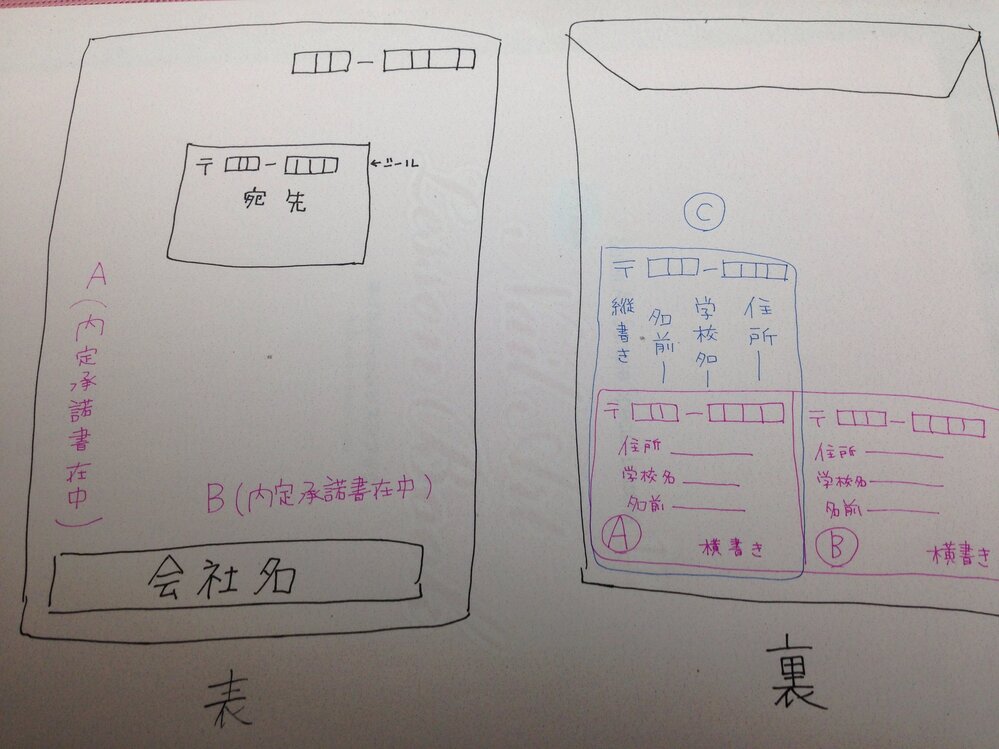 〒
宛先
←シール
A(内定承諾書在中)
B(内定承諾書在中)
会社名
表
C
〒
住所
学校名
名前
縦書き
〒
住所
学校名
名前
A
横書き
〒
住所
学校名
名前
B
横書き
裏